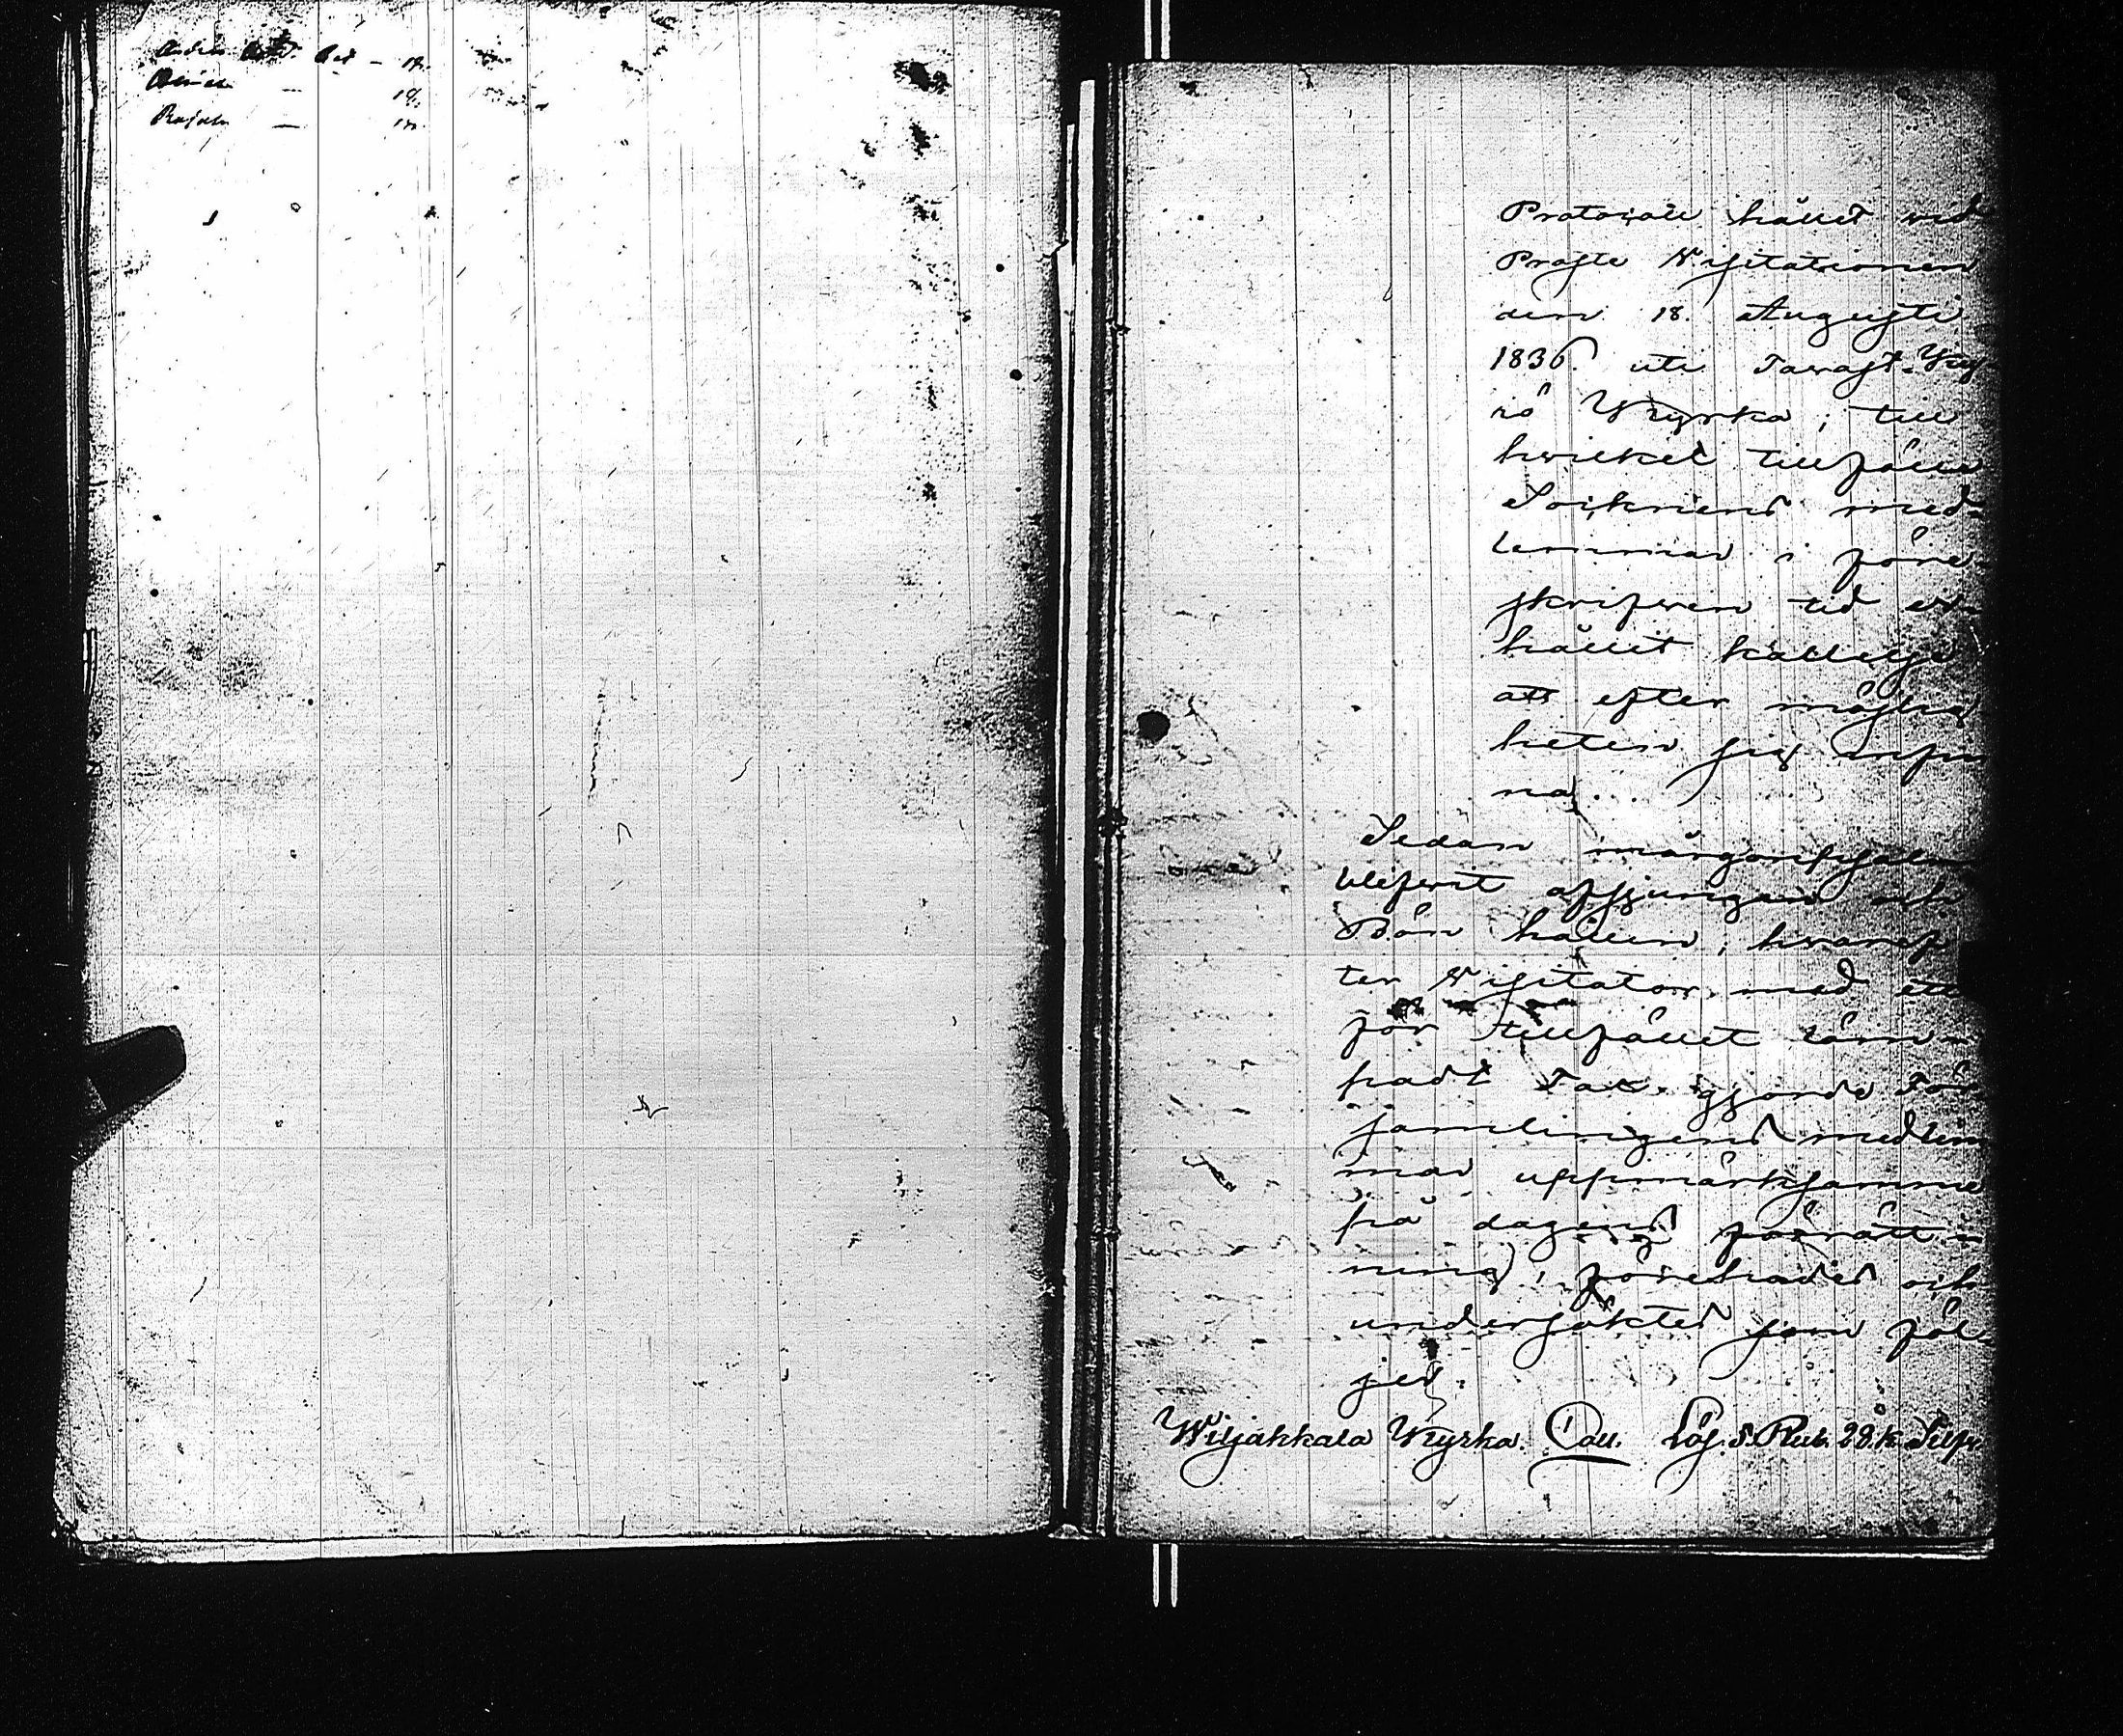 Protocoll hållet vid
Prosts Visitationen
den 18. Augusti
1836. uti Tavast-Kyr
rö Kyrka, till
hvilket tillfälle
Socknens med-
lemmar i före-
skrifven tid er-
hållit kallelse
att efter möjlig
heten sig infin
na.
Sedan morgonpsalm
blifvit afsjungen och
Bön hållen, hvaref
ter Visitator, med ett
för tillfället läm-
padt Tal, gjorde För
samlingens medlem
mar uppmärksamme
på dagens förrätt-
ning, förehades och
undersöktes som föl-
jer.
Wiljakkala Kyrka. Coll. 5. Rub. 28. k. Silfv.